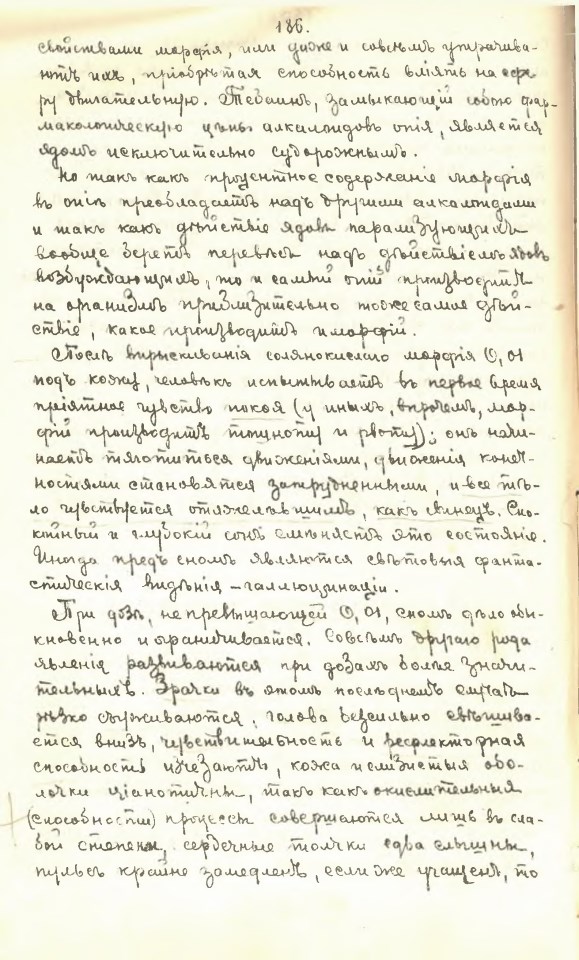 186.
свойствами морфія, или даже и совсѣмъ утрачива-
ютъ ихъ, пріобрѣтая способность вліять на сфе-
ру двигательную. Тебаинъ, замыкающій собою фар-
макологическую цѣпь алкалоидовъ опія, является
ядомъ исключительно судорожнымъ.
Но такъ какъ процентное содержаніе морфія
въ опіѣ преобладаетъ надъ другими алкалоидами
и такъ какъ дѣйствіе ядовъ парализующихъ
вообще беретъ перевѣсъ надъ дѣйствіемъ ядовъ
возбуждающихъ, то и самый опій производитъ
на организмъ приблизительно тоже самое дѣй-
ствіе, какое производитъ и морфій.
Послѣ впрыскиванія солянокислаго морфія 0,01
подъ кожу, человѣкъ испытываетъ въ первое время
пріятное чувство покоя (у иныхъ, впрочемъ, мор-
фій производитъ тошноту и рвоту); онъ начи-
наетъ тяготиться движеніями, движенія конеч-
ностями становятся затрудненными, и все тѣ-
ло чувствуется отяжелѣвшимъ, какъ свинецъ. Спо-
койный и глубокій сонъ смѣняетъ это состояніе.
Иногда предъ сномъ являются свѣтовыя фанта-
стическія видѣнія – галлюцинаціи.
При дозѣ, не превышающей 0,01, сномъ дѣло обы-
кновенно и ограничивается. Совсѣмъ другаго рода
явленія развиваются при дозахъ болѣе значи-
тельныхъ. Зрачки въ этомъ послѣднемъ случаѣ
рѣзко съуживаются, голова безсильно свѣшива-
ется внизъ, чувствительность и рефлекторная
способность изчезаютъ, кожа и слизистыя обо-
лочки ціанотичны, такъ какъ окислительныя
(способности) процессы совершаются лишь въ сла-
бой степени, сердечные толчки едва слышны,
пульсъ крайне замедленъ, если же учащенъ, то